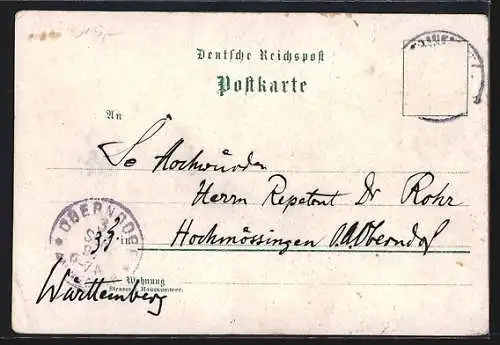 Deutsche Reichspost
Postkarte
An
Se Hochwürden
Herrn Repetent Dr Rohr
in
Hochmössingen O.A. Oberndorf
OBERNDORF
Wohnung
Württemberg